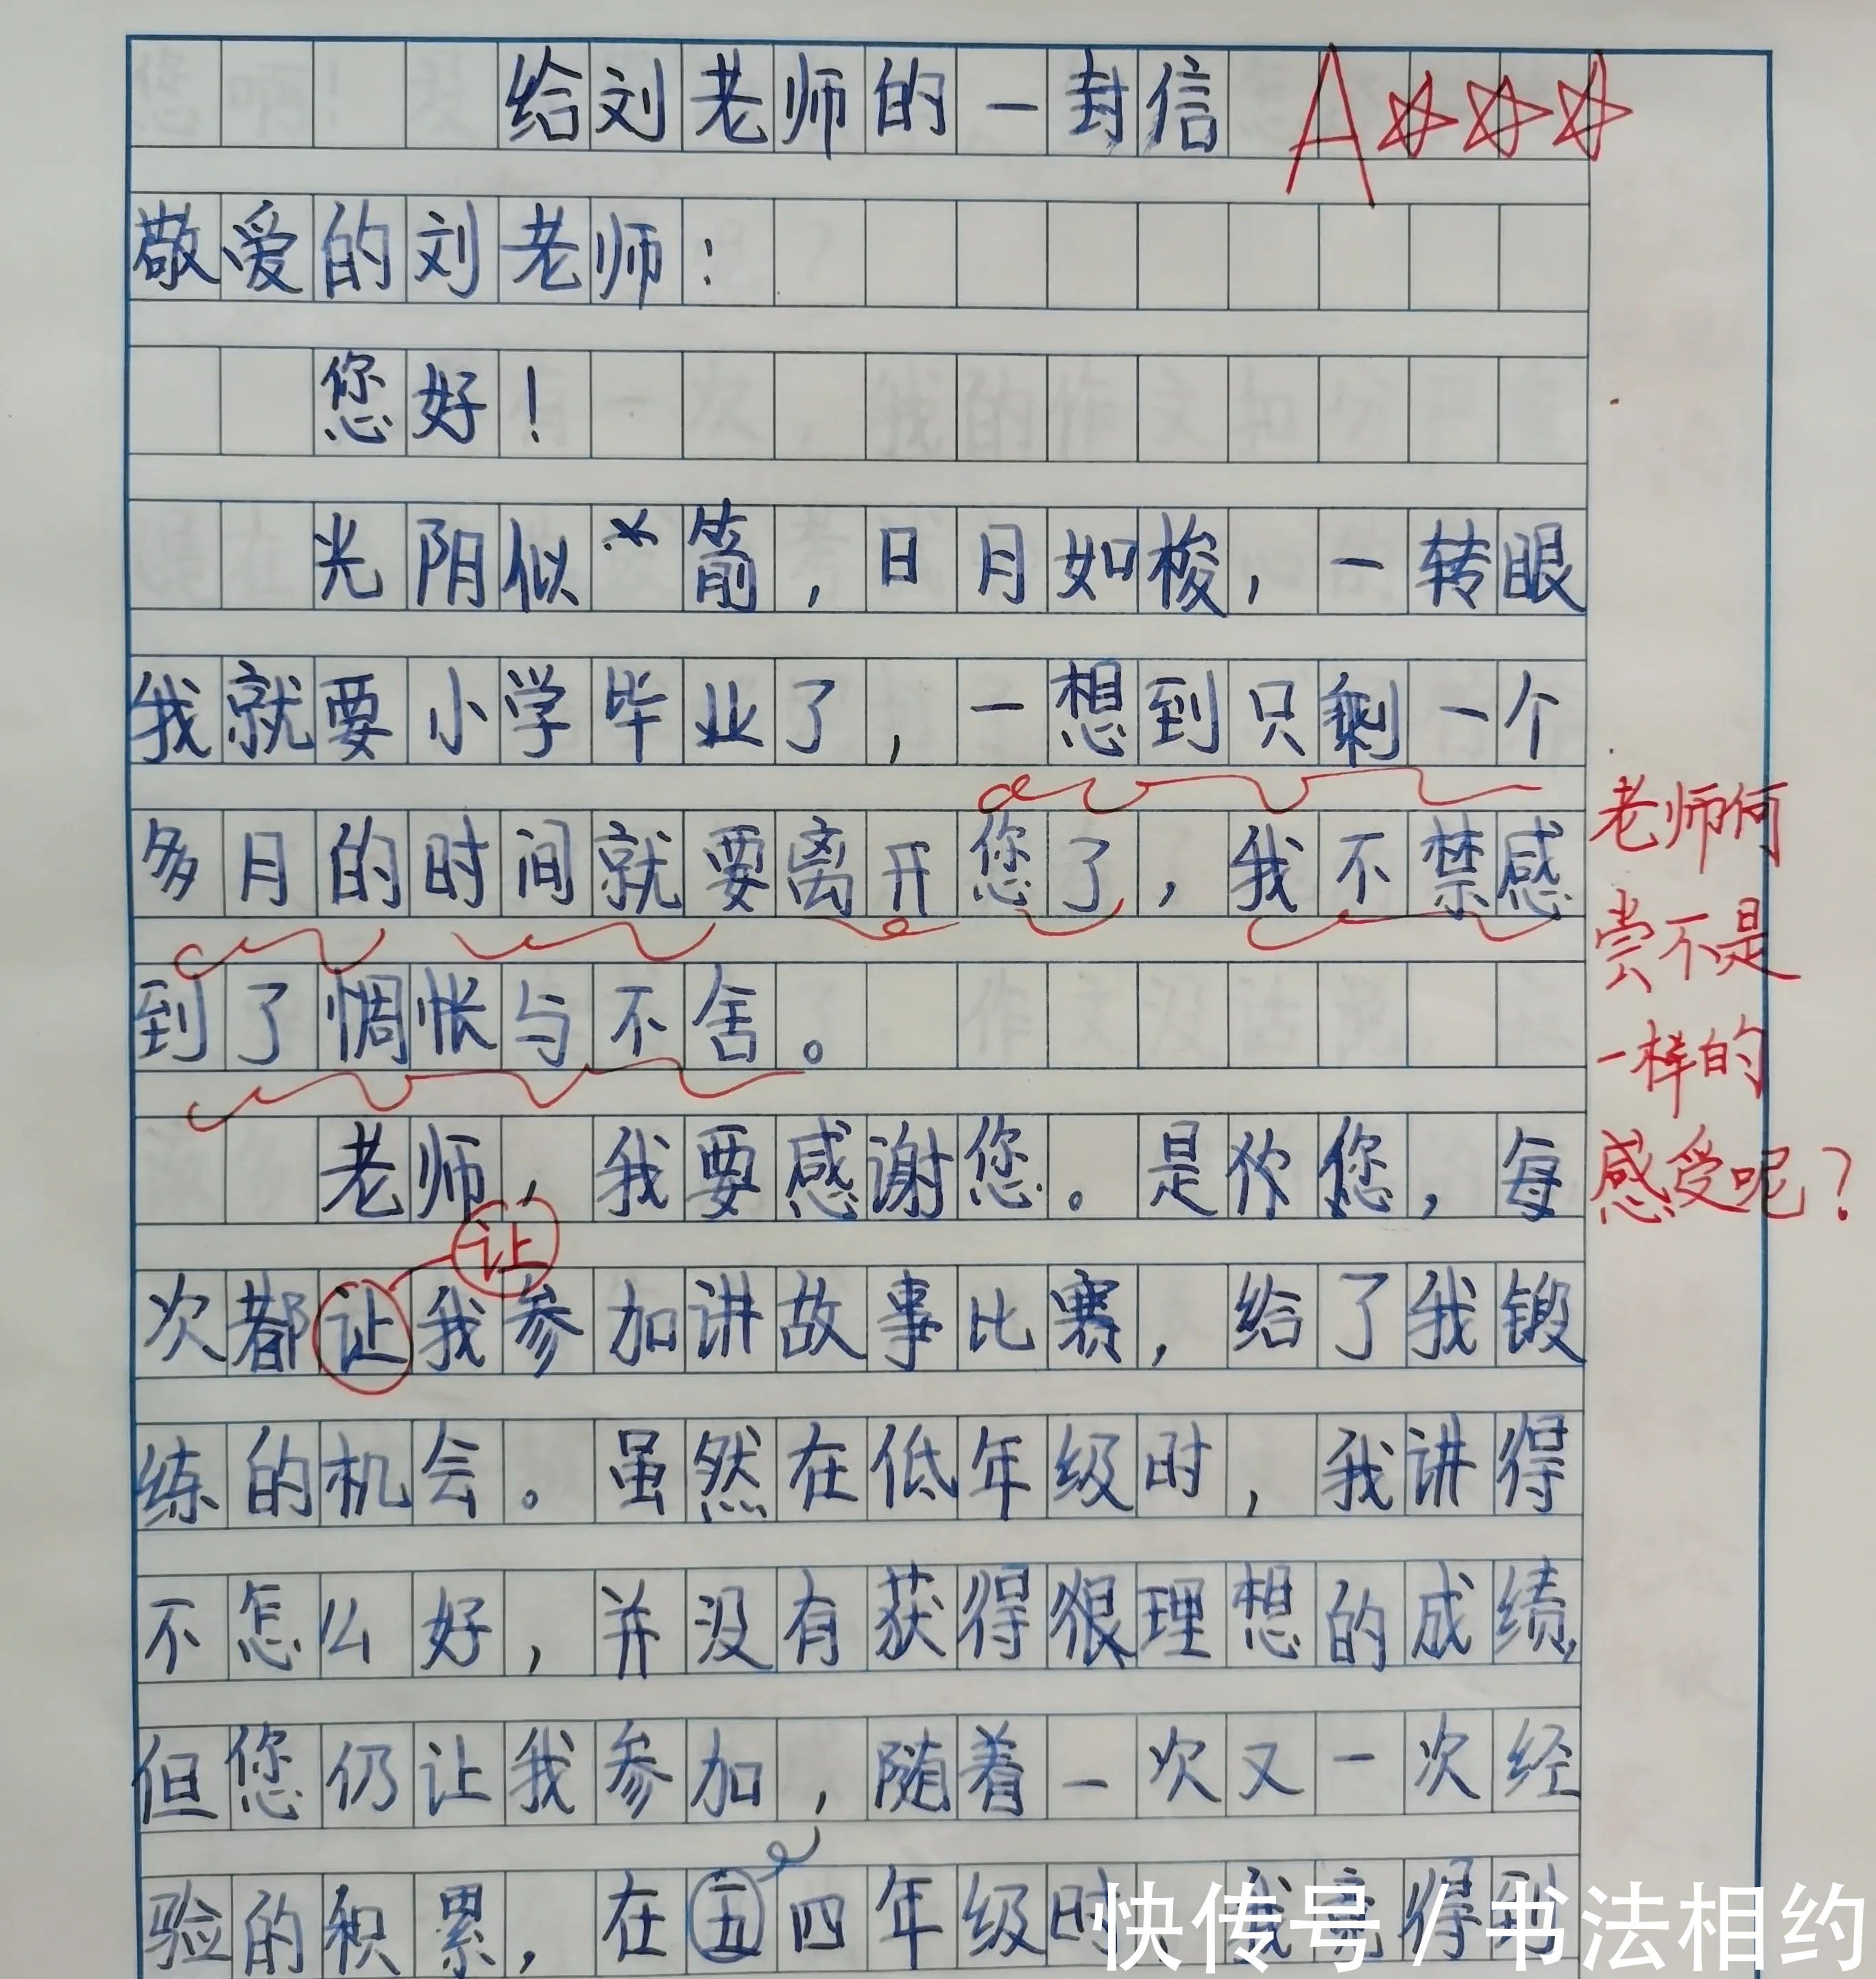 给刘老师的一封信 A☆☆☆
敬爱的刘老师：
您好！
光阴似箭，日月如梭，一转眼
我就要小学毕业了，一想到只剩一个
多月的时间就要离开您了，我不禁感
到了惆怅与不舍。
老师何
尝不是
一样的
感受呢？
老师，我要感谢您。是你您，每
让
次都让我参加讲故事比赛，给了我锻
练的机会。虽然在低年级时，我讲得
不怎么好，并没有获得很理想的成绩，
但您仍让我参加，随着一次又一次经
验的积累，在五四年级时，我竟得到
快传号 / 书法相约